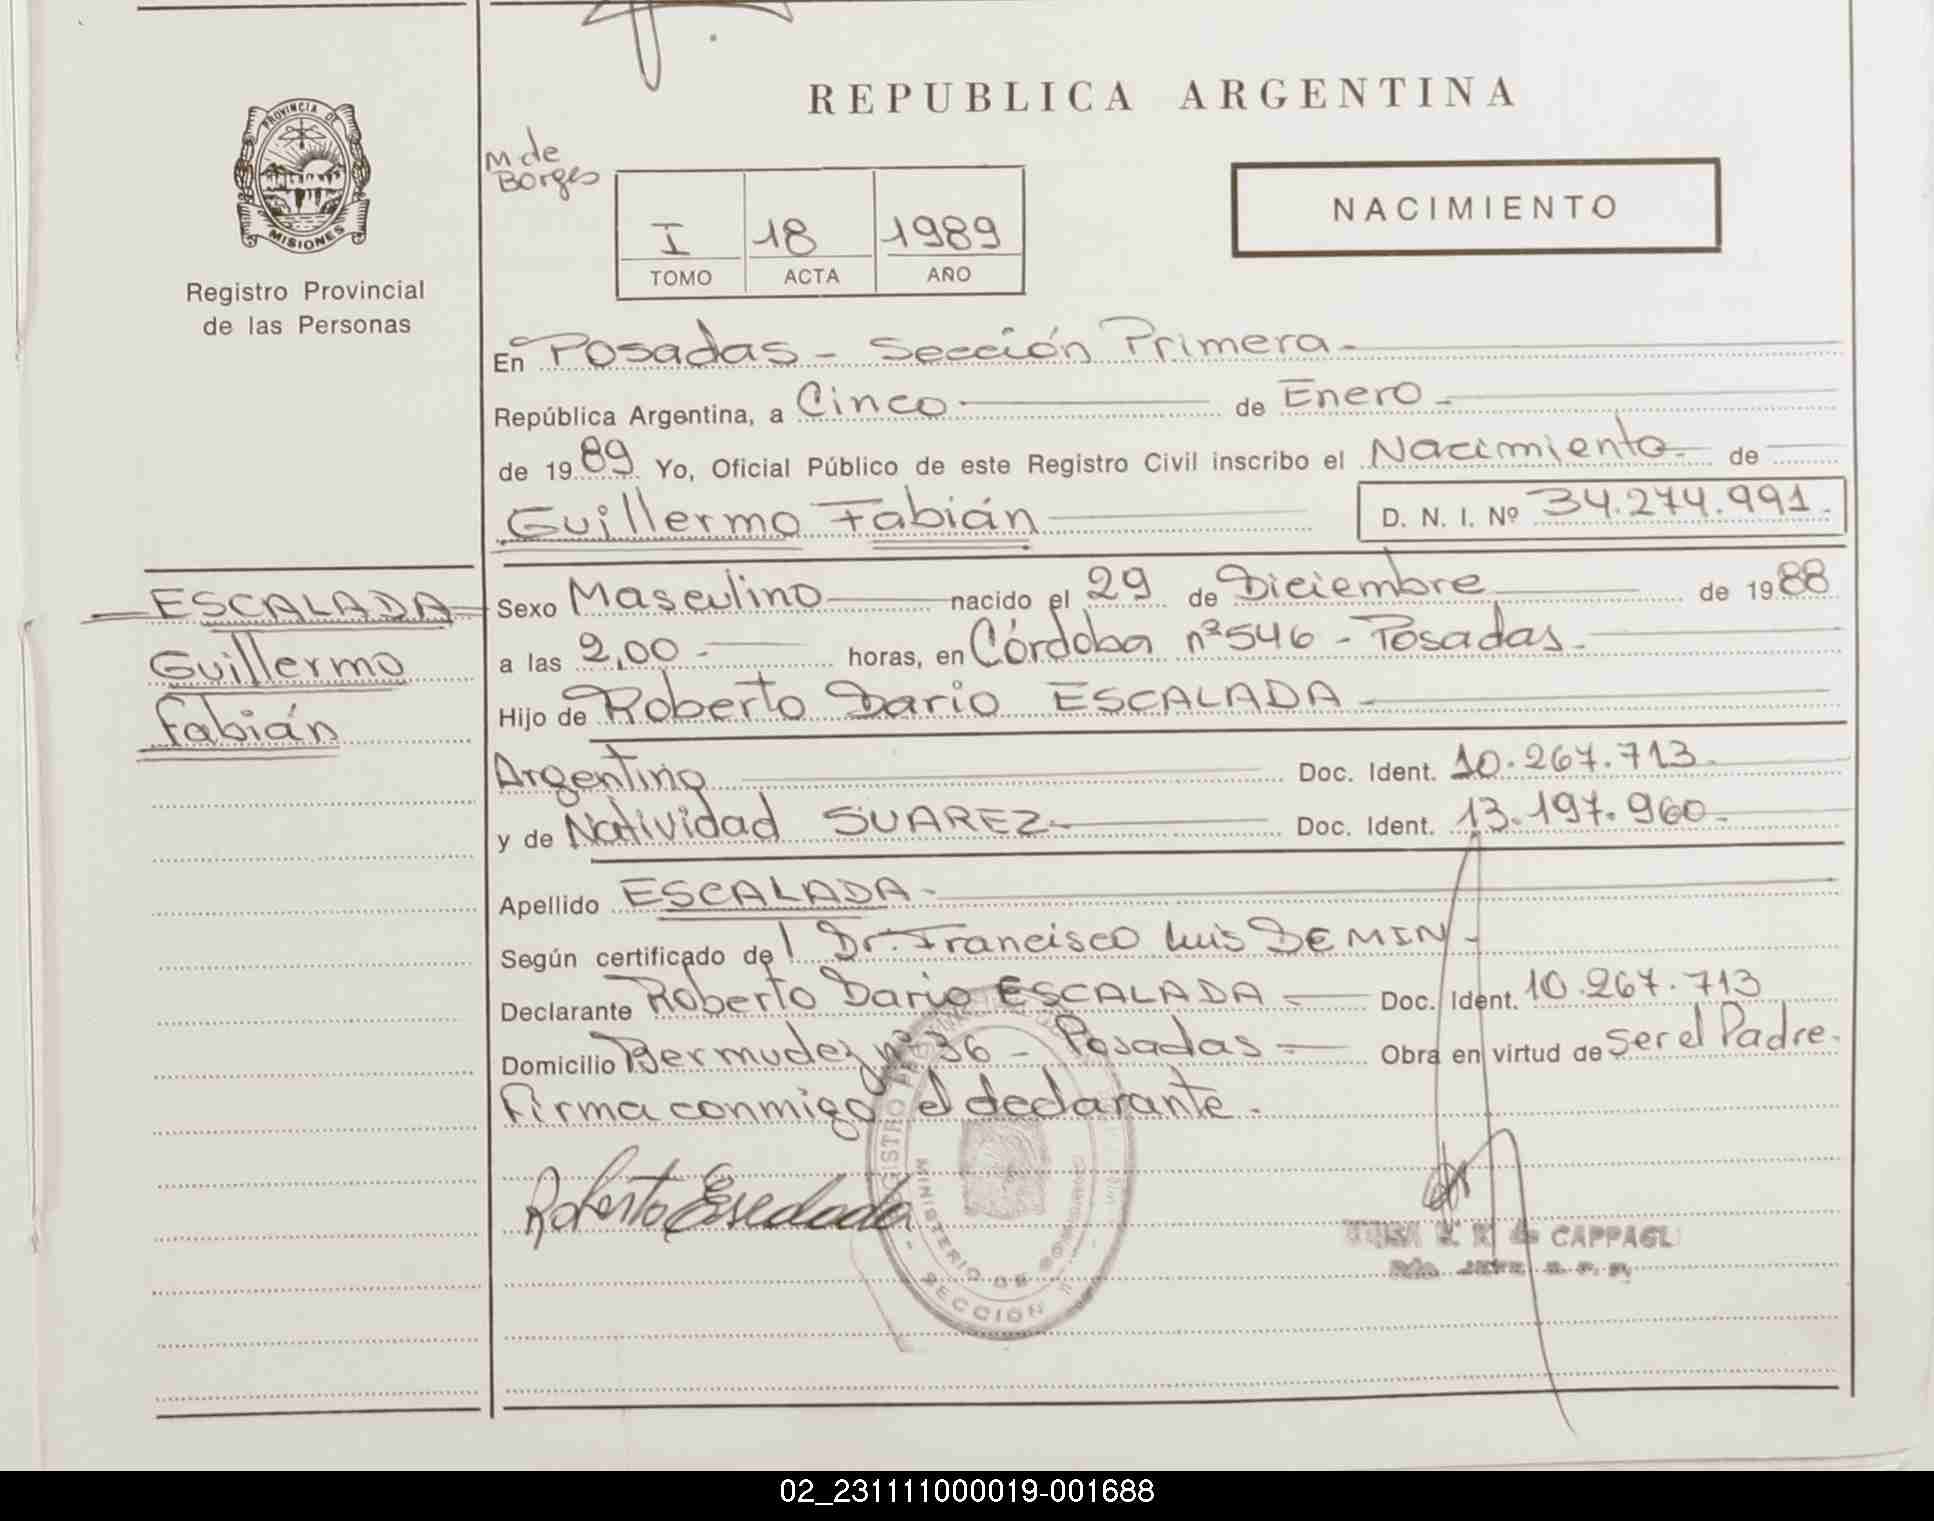 REPUBLICA ARGENTINA
PROVINCIA DE
MISIONES
Registro Provincial
de las Personas
M de
Borges
I 18 1989
TOMO ACTA AÑO
NACIMIENTO
En Posadas - Sección Primera -
República Argentina, a Cinco de Enero -
de 1989 Yo, Oficial Público de este Registro Civil inscribo el Nacimiento - de
Guillermo Fabián
D. N. I. Nº 34.274.991.
ESCALADA
Guillermo
Fabián
Sexo Masculino nacido el 29 de Diciembre de 1988
a las 2,00 - horas, en Córdoba nº 546 - Posadas -
Hijo de Roberto Dario ESCALADA -
Argentino Doc. Ident. 10.267.713 -
y de Natividad SUAREZ - Doc. Ident. 13.197.960 -
Apellido ESCALADA -
Según certificado del Dr. Francisco Luis DEMIN -
Declarante Roberto Dario ESCALADA - Doc. Ident. 10.267.713
Domicilio Bermudez nº 36 - Posadas - Obra en virtud de Ser el Padre -
Firma conmigo el declarante -
Roberto Escalada
MINISTERIO DE
SECCION
de CAPPAGL
02_231111000019-001688